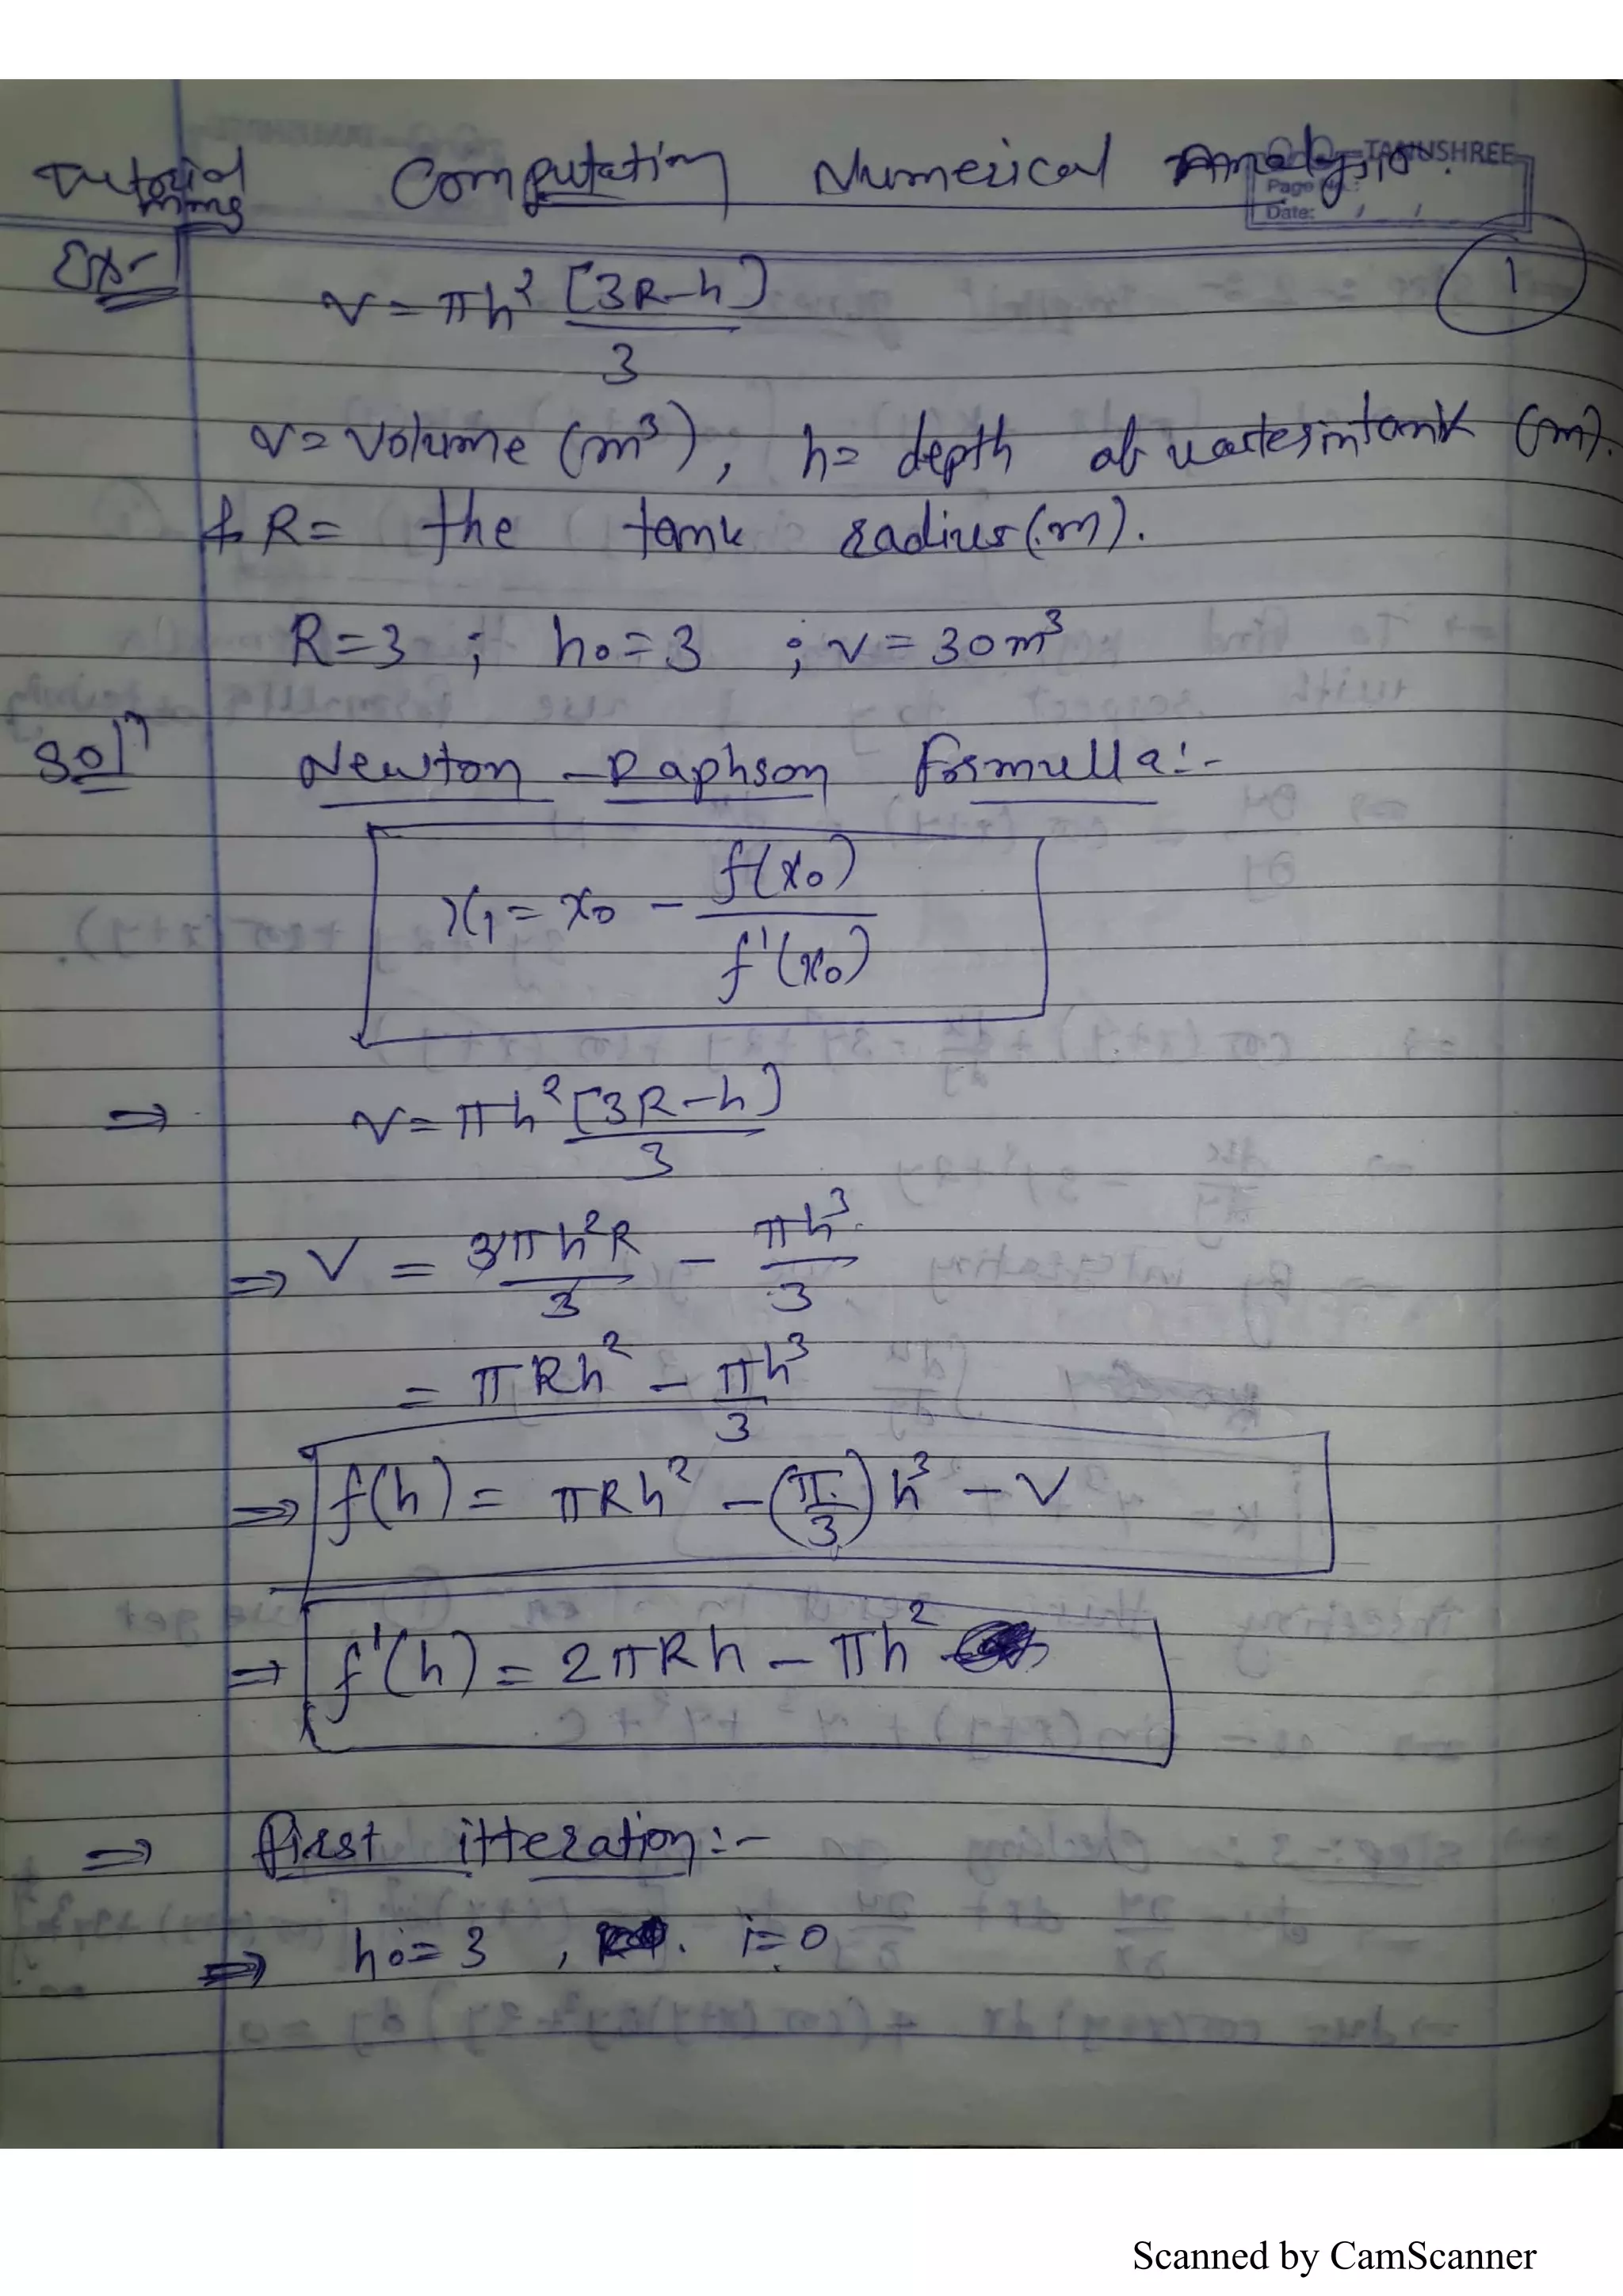 Tutorial Computation Numerical Analysis.
TANUSHREE
Page No.:
Date: / /
Ex- 1
V = πh² [3R-h]
3
V = Volume (m³), h = depth of water in tank (m).
& R = the tank radius (m).
R = 3 ; h₀ = 3 ; V = 30 m³
Solⁿ Newton - Raphson formulla :-
x₁ = x₀ - f(x₀)
f'(x₀)
⇒ V = πh² [3R-h]
3
⇒ V = 3πh²R / 3 - πh³ / 3
= πRh² - πh³ / 3
⇒ f(h) = πRh² - (π/3) h³ - V
⇒ f'(h) = 2πRh - πh²
⇒ first itteration :-
⇒ h₀ = 3 , i = 0
Scanned by CamScanner